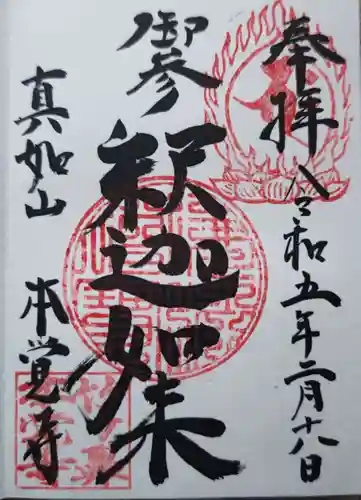 奉拝 令和五年二月十八日
御参
釈迦如来
真如山 本覚寺